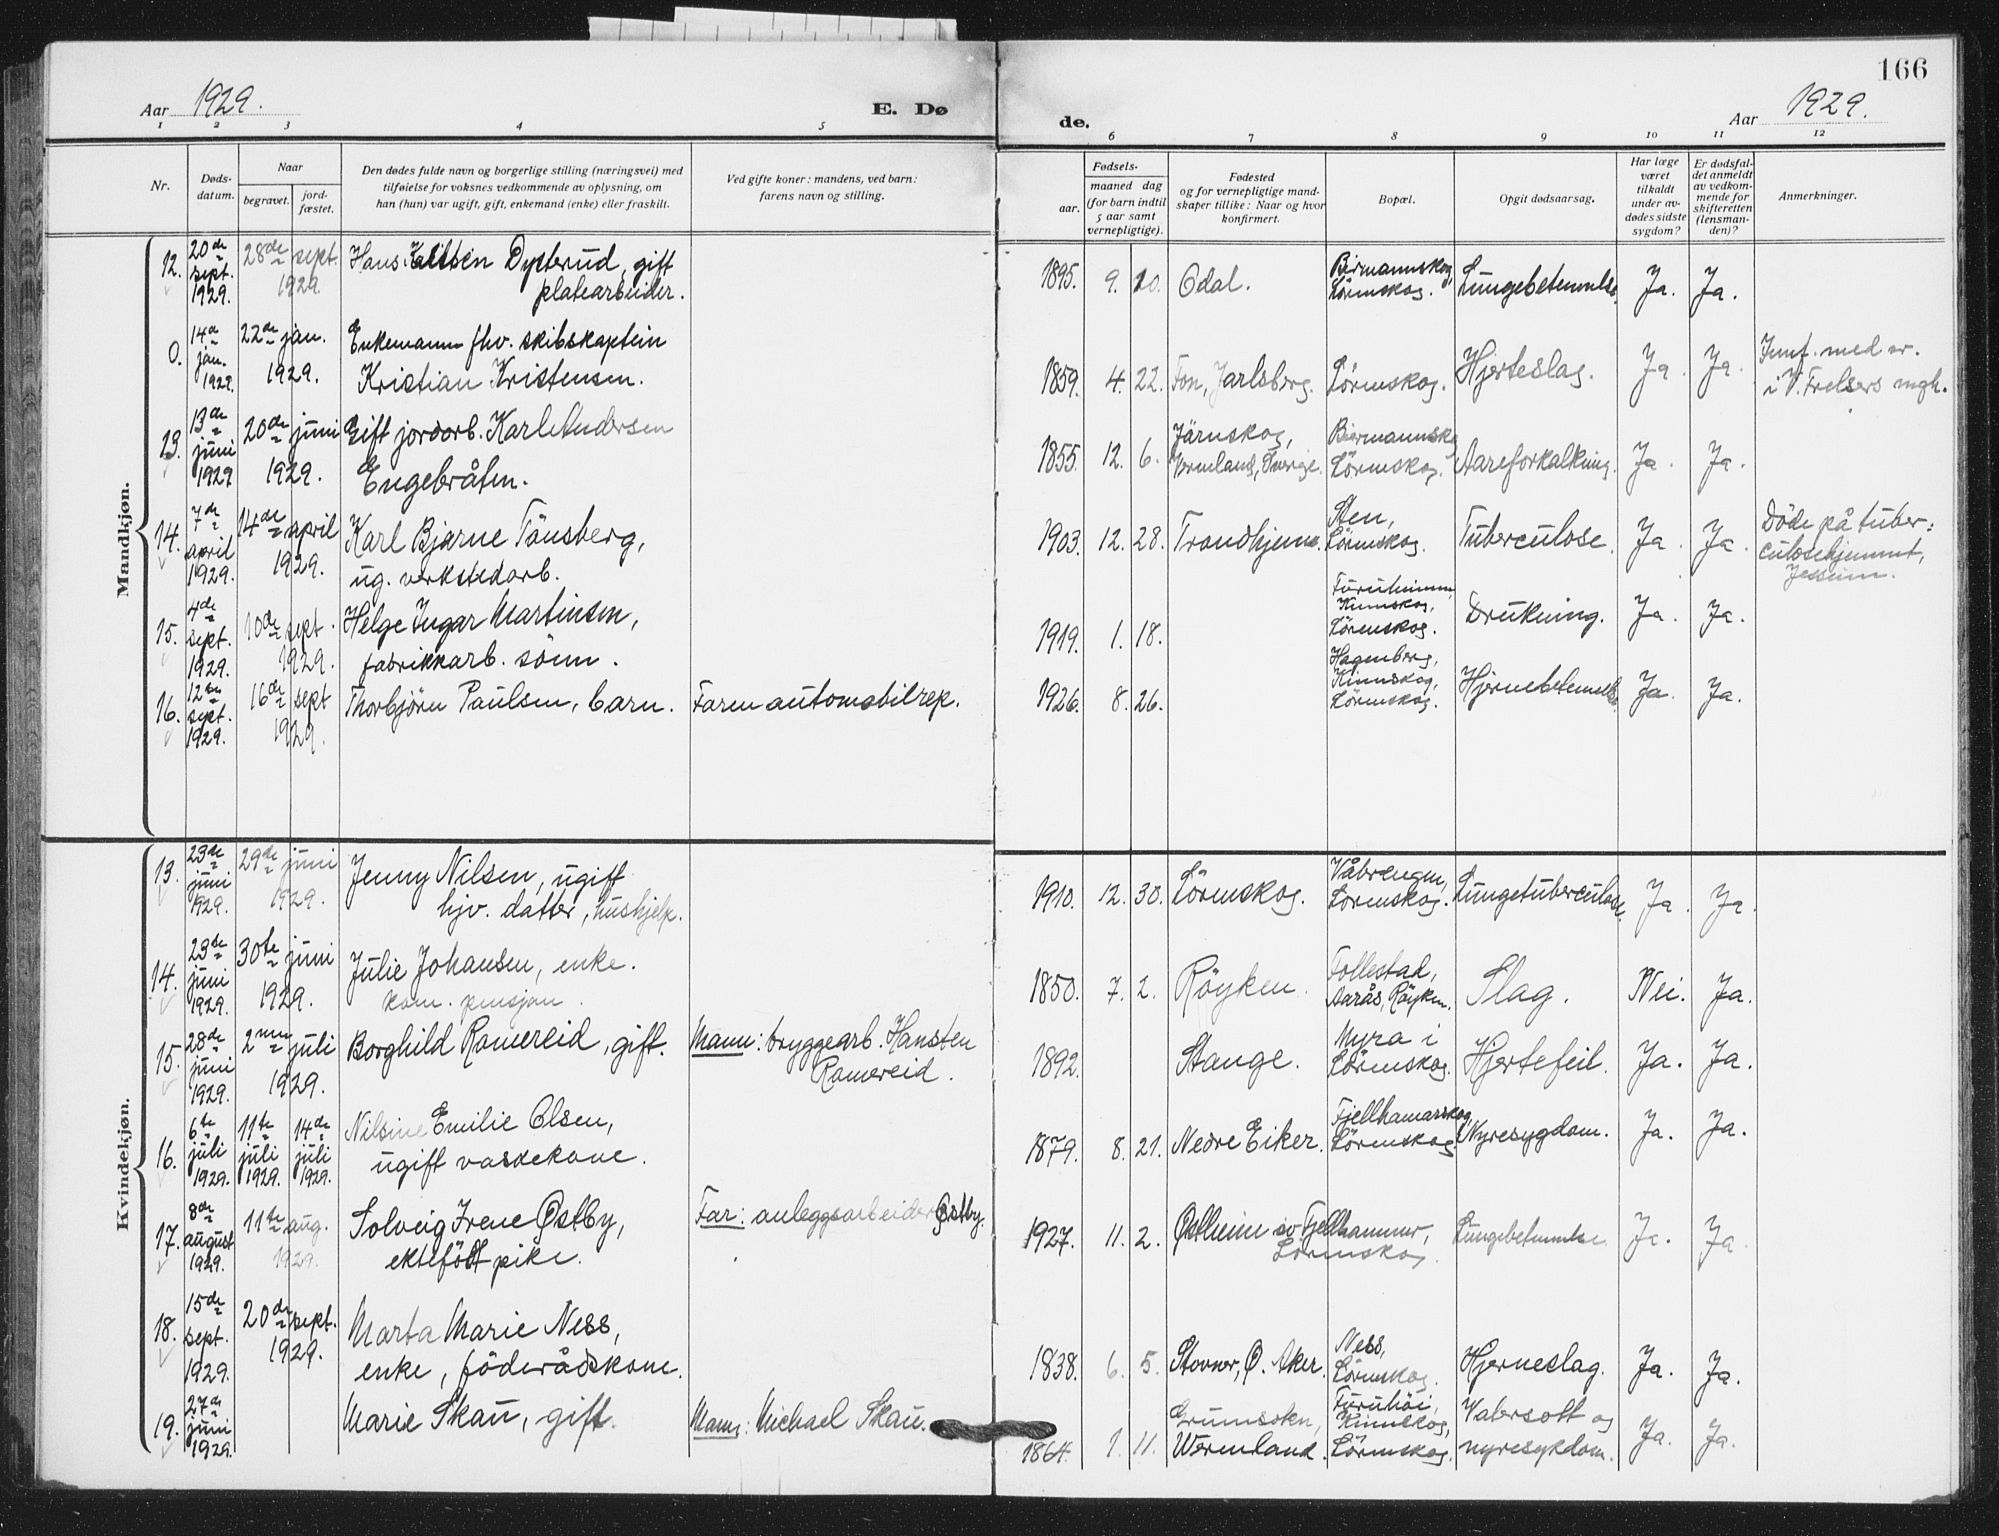 166
Aar 1929.
E. Dø
de.
Aar 1929.
1 2 3 4 5 6 7 8 9 10 11 12
Nr.
Døds-
datum.
Naar
begravet.
jord-
fæstet.
Den dødes fulde navn og borgerlige stilling (næringsvei) med
tilføielse for voksnes vedkommende av oplysning, om
han (hun) var ugift, gift, enkemand (enke) eller fraskilt.
Ved gifte koner: mandens, ved barn:
farens navn og stilling.
Fødsels-
aar.
maaned dag
(for barn indtil
5 aar samt
vernepligtige).
Fødested
og for vernepligtige mand-
skaper tillike: Naar og hvor
konfirmert.
Bopæl.
Opgit dødsaarsag.
Har læge
været
tilkaldt
under av-
dødes sidste
sygdom?
Er dødsfal-
det anmeldt
av vedkom-
mende for
skifteretten
(lensman-
den)?
Anmerkninger.
Mandkjøn.
12.
20de
sept.
1929.
28de sept.
1929.
Hans Dysterud, gift
platearbeider.
1895. 9. 20. Odal.
Biermannskog,
Lörenskog.
Lungebetennelse. Ja. Ja.
0.
14de
jan.
1929.
22de jan.
1929.
Enkemann fhv. skibskaptein
Kristian Kristensen.
1859. 4. 22. Fon, Jarlsberg. Lörenskog. Hjerteslag. Ja. Ja.
Innf. med nr.
i V. Frelsers mgh.
13.
13de
juni
1929
20de juni
1929.
Gift jordarb. Karl Andersen
Engebråten.
1855. 12. 6.
Järnskog,
Vermland, Sverige.
Biermannskog
Lörenskog.
Aareforkalkning. Ja. Ja.
14.
7de
april
1929.
14de april
1929.
Karl Bjarne Tönsberg,
ug. verkstedarb.
1903. 12. 28. Trondhjem.
Sten,
Lörenskog.
Tuberculose. Ja. Ja.
Döde på tuber:
culosehjemmet,
Jessheim.
15.
4de
sept.
1929.
10de sept.
1929.
Helge Ingar Martinsen,
fabrikkarb. sönn.
1919. 1. 18.
Furuheimen,
Kinnskog,
Lörenskog.
Drukning. Ja. Ja.
16.
12te
sept.
1929.
16de sept
1929.
Thorbjörn Paulsen, barn. Faren automobilrep.
1926. 8. 26.
Hagenberg,
Kinnskog,
Lörenskog.
Hjernebetennelse. Ja. Ja.
Kvindekjøn.
13.
23de
juni
1929.
29de juni
1929.
Jenny Nilsen, ugift
hjv. datter, hushjelp.
1910. 12. 30. Lörenskog.
Våbrengen,
Lörenskog.
Lungetuberculose. Ja. Ja.
14.
23de
juni
1929.
30te juni
1929.
Julie Johansen, enke.
kom. pensjon.
1850. 7. 2. Röyken.
Follestad,
Aarås, Röyken.
Slag. Nei. Ja.
15.
28de
juni
1929.
2nen juli
1929.
Borghild Romereid, gift.
Mann: bryggearb. Hansten
Romereid.
1892. Stange.
Myra i
Lörenskog.
Hjertefeil. Ja. Ja.
16.
6te
juli
1929.
11te
juli
1929.
14de
juli
1929.
Nilsine Emilie Olsen,
ugift vaskekone.
1879. 8. 21. Nedre Eiker.
Fjellhamarskog
Lörenskog.
Nyresygdom. Ja. Ja.
17.
8de
august
1929.
11te aug.
1929.
Solveig Irene Østby,
ektefödt pike.
Far: anleggsarbeider Østby.
1927. 11. 2. Østheim av Fjellhammer,
Lörenskog.
Lungebetennelse Ja. Ja
18.
15de
sept.
1929.
20de sept.
1929.
Marta Marie Ness,
enke, föderådskone.
1838. 6. 5. Stovner, Ø. Aker.
Ness,
Lörenskog.
Hjerneslag. Ja. Ja.
19.
27de
juni
1929.
Marie Skau, gift.
Mann: Michael Skau.
1864. 1. 11.
Grumsokn,
Wermland.
Furuhöi,
Kinnskog,
Lörenskog.
Vatersott og
nyresykdom.
Ja. Ja.